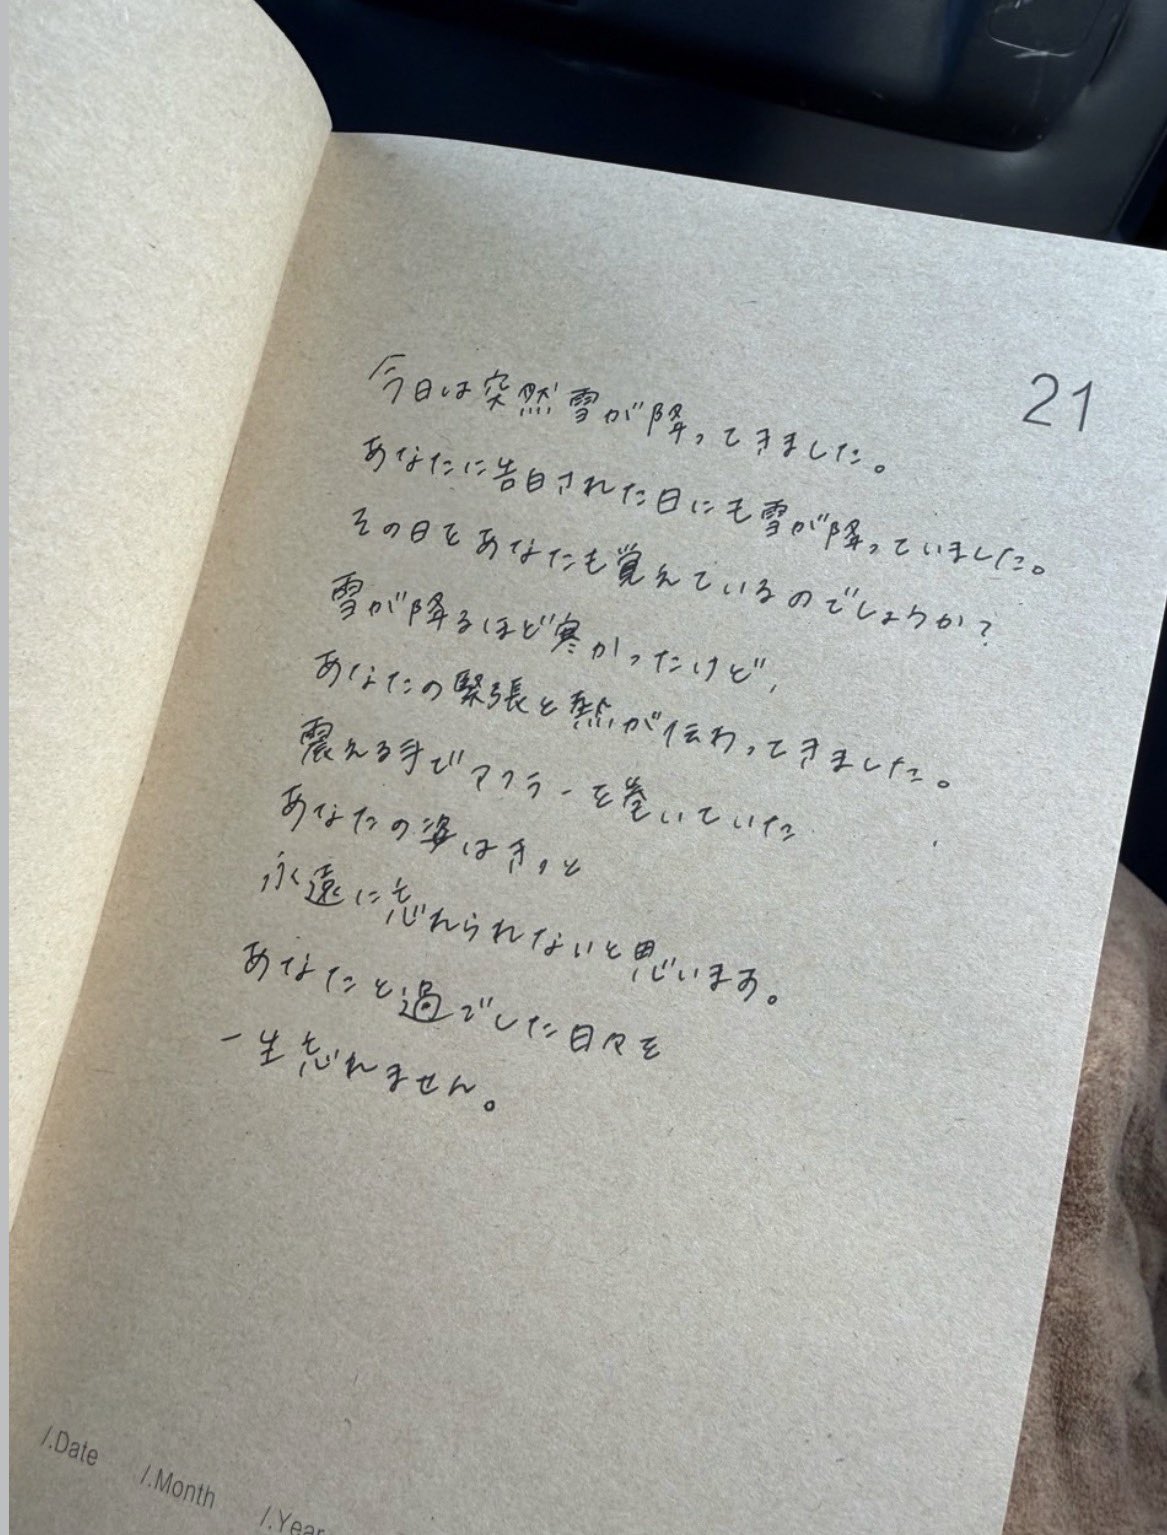 21
今日は突然雪が降ってきました。
あなたに告白された日にも雪が降っていました。
その日をあなたも覚えているのでしょうか?
雪が降るほど寒かったけど、
あなたの緊張と熱が伝わってきました。
震える手でマフラーを巻いていた
あなたの姿はきっと
永遠に忘れられないと思います。
あなたと過ごした日々を
一生忘れません。
/.Date /.Month /.Year